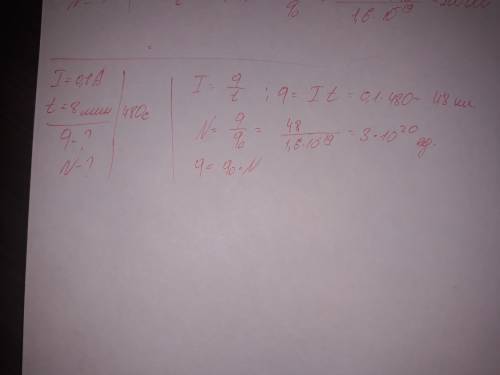 1,6·10⁻¹⁹
I = 0,1A
t = 8 мин | 480с
q - ?
N - ?
I = q/t ; q = I t = 0,1·480 = 48 кл
N = q/q₀ = 48/1,6·10⁻¹⁹ = 3·10²⁰ ед.
q = q₀·N